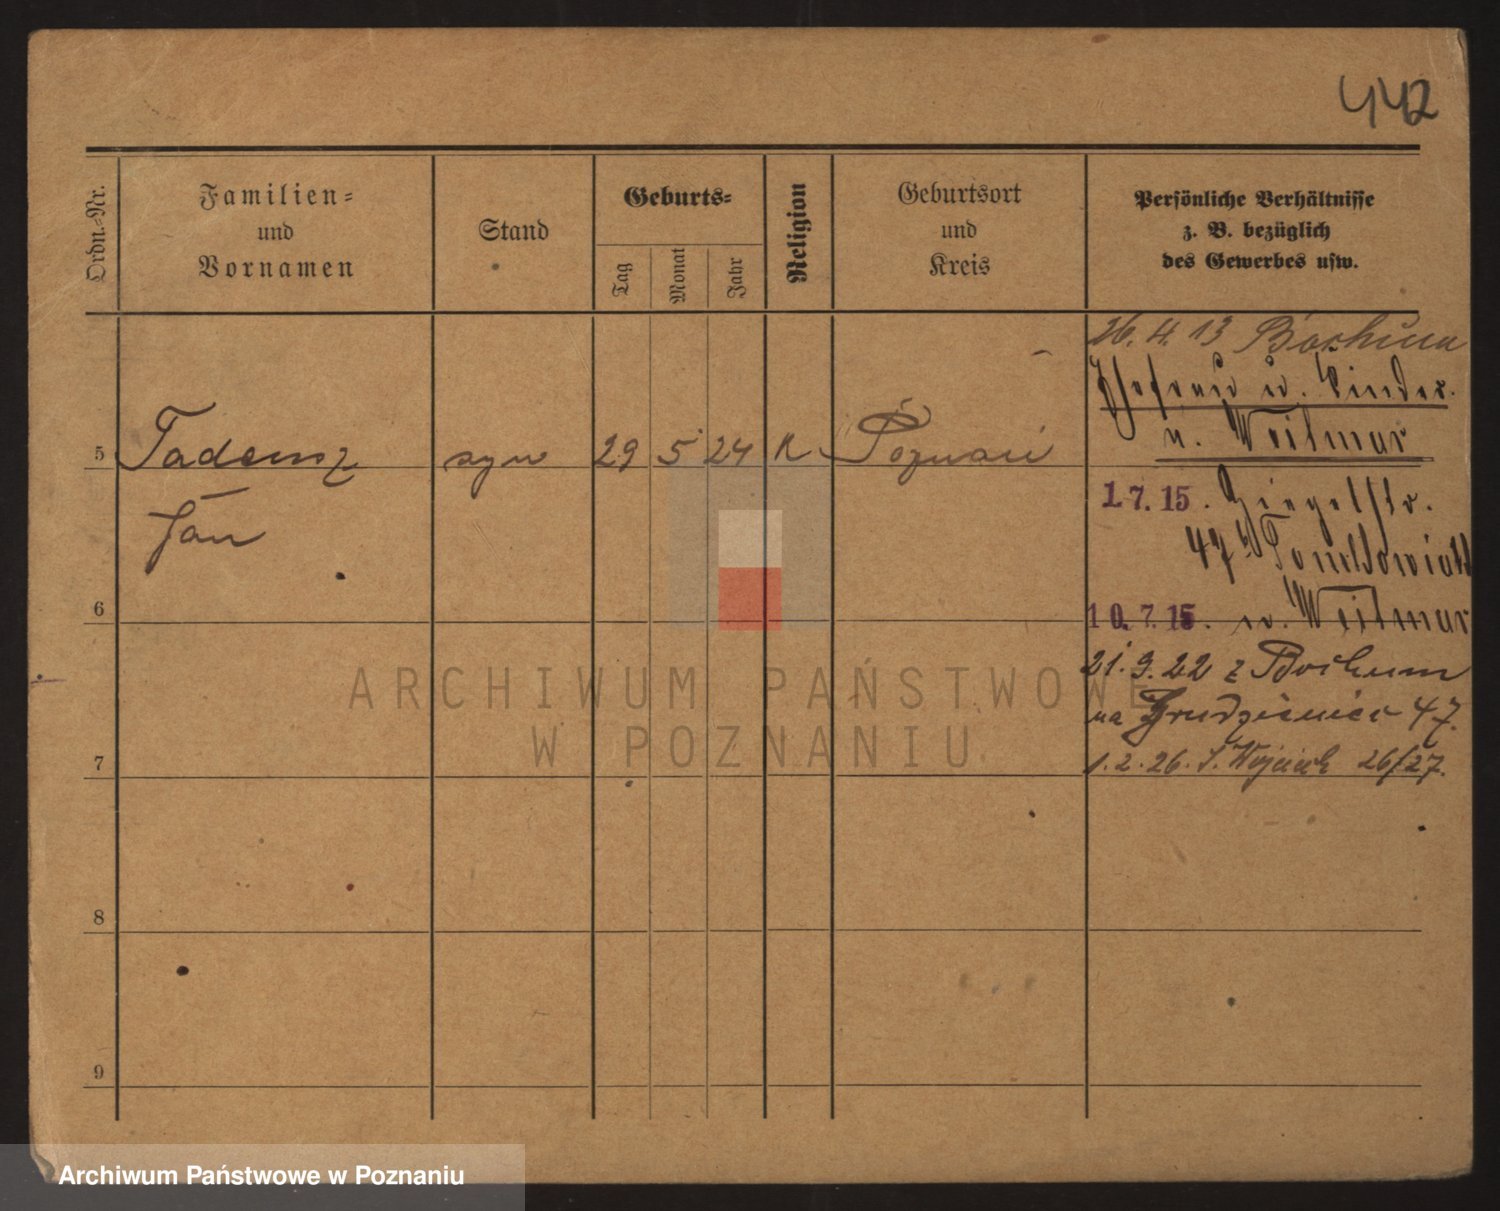 442
Ordn.-Nr.
Familien-
und
Vornamen
Stand
Geburts-
Tag
Monat
Jahr
Religion
Geburtsort
und
Kreis
Persönliche Verhältnisse
z. B. bezüglich
des Gewerbes usw.
5 Tadeusz syn 29 5 24 K Poznań
Jan
6
7
8
9
26. 4. 13 Bochum
Ehefrau u. Kinder
n. Weitmar
1.7.15. Ziegelstr.
47
10.7.15. n. Weitmar
21.9.22 z Bochum
na Grudzieniec 47.
1.2.26. Ś. Wojciech 26/27.
ARCHIWUM PAŃSTWOWE
W POZNANIU
Archiwum Państwowe w Poznaniu